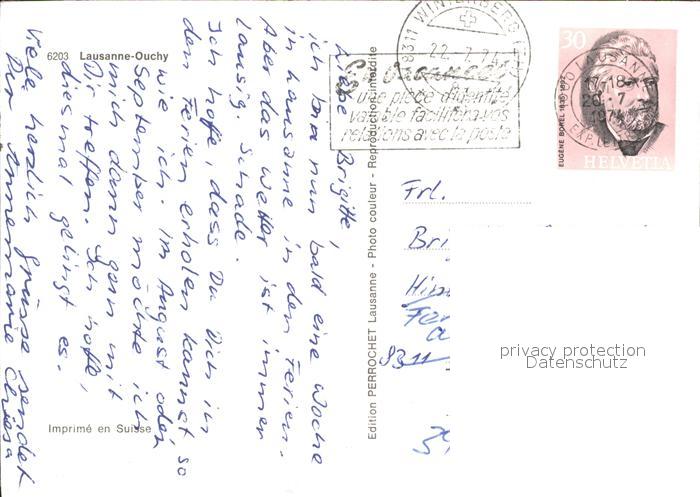 6203 Lausanne-Ouchy
Liebe Brigitte,
ich bin nun bald eine Woche
in Lausanne in den Ferien.
Aber das Wetter ist immer
lausig. Schade.
Ich hoffe, dass Du Dich in
den Ferien erholen kannst so
wie ich. Im August oder
September möchte ich
mich dann gern mit
Dir treffen. Ich hoffe,
diesmal gelingt es.
Viele herzlich Grüsse sendet
Dir Annemarie
Imprimé en Suisse
Edition PERROCHET Lausanne - Photo couleur - Reproduction interdite
8311 WINTERBERG
22.7.74
En vacances
une pièce d'identité
valable facilitera vos
relations avec la poste
LAUSANNE
17-18
20.7.
1974
EXP. LET
30
EUGÈNE BOREL 1835-1892
HELVETIA
Frl.
Bri
8311
privacy protection
Datenschutz